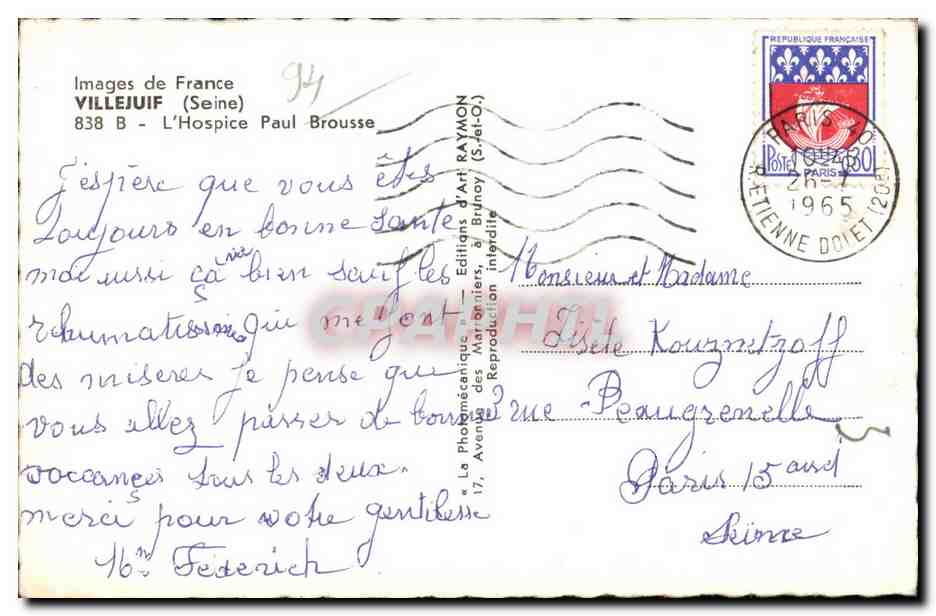 Images de France
VILLEJUIF (Seine)
838 B - L'Hospice Paul Brousse
94
J'espère que vous êtes
toujours en bonne sante
moi aussi ça va bien sauf les
rhumatismes qui me font
des miseres je pense que
vous allez passer de bonne
vaccances tous les deux.
merci pour votre gentilesse
Mm Federich
« La Photomécanique » - Editions d'Art RAYMON
17, Avenue des Marronniers, à Brunoy (S.-et-O.)
Reproduction interdite
REPUBLIQUE FRANÇAISE
POSTES 0,30
PARIS
PARIS
26-7
1965
R. ETIENNE DOLET (20e)
Monsieur et Madame
Kouznetzoff
3 rue Beaugrenelle
Paris 15 arrd
Seine
CPARAMA